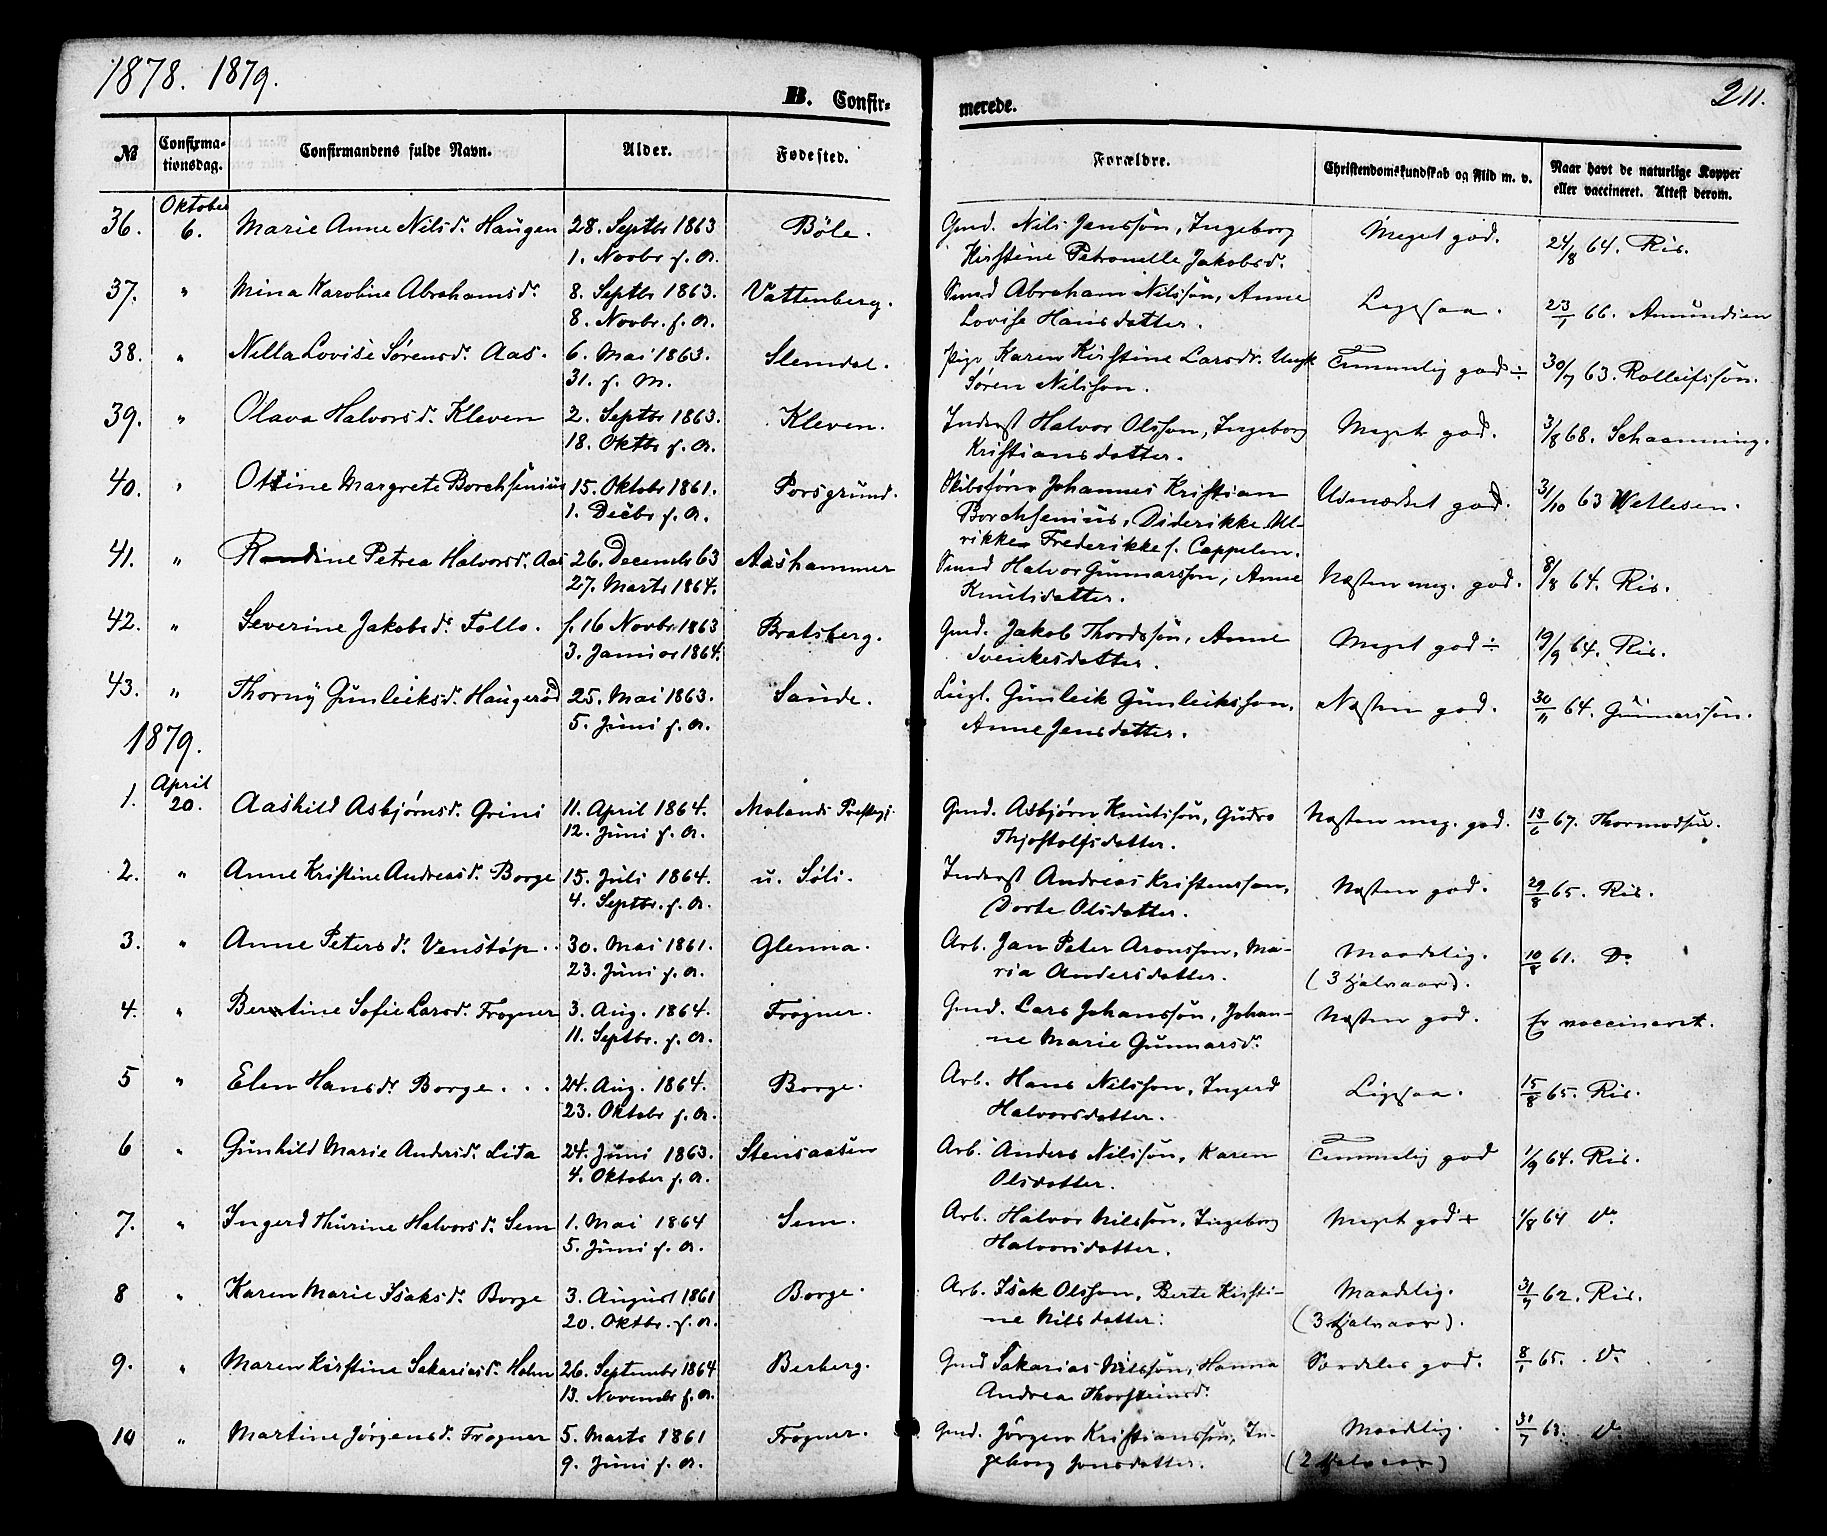 1878. 1879.
B. Confir-
merede.
211.
№
Confirma-
tionsdag.
Confirmandens fulde Navn.
Alder.
Fødested.
Forældre.
Christendomskundskab og Flid m. v.
Naar havt de naturlige Kopper
eller vaccineret. Attest derom.
36. Oktober 6. Marie Anne Nilsd. Haugen 28. Septbr 1863 Bøle. Gmd. Nils Jenssøn, Ingeborg Meget god. 24/8 64. Ris.
1. Novbr s. A. Kirstine Petronelle Jakobsd.
37. " Mina Karoline Abrahamsd. 8. Septbr 1863. Vattenberg. Smed Abraham Nilssøn, Anne Ligesaa. 23/1 66. Amundsen
8. Novbr. s. A. Lovise Hansdatter.
38. " Nilla Lovise Sørensd. Aas. 6. Mai 1863. Slemdal. Pige Karen Kirstine Larsdr. Ungk Temmelig god ÷ 30/7 63. Rolleifssøn.
31. s. M. Søren Nilsson.
39. " Olava Halvorsd. Kleven 2. Septbr 1863. Kleven. Inderst Halvor Olsson, Ingeborg Meget god. 3/8 68. Schaanning.
18. Oktbr s. A. Kristiansdatter.
40. " Ottine Margrete Borchsenius 15. Oktobr 1861. Porsgrund. Skibsfører Johannes Kristian Udmærket god. 31/10 63 Wetlesen.
1. Decbr s. A. Borchsenius, Diderikke Ul-
rikke Frederikke f. Cappelen.
41. " Randine Petrea Halvorsd. Aas 26. Decembr 63 Aashammer Smed Halvor Gunnarsson, Anne Næsten meg. god. 8/8 64. Ris.
27. Marts 1864. Knutsdatter.
42. " Severine Jakobsd. Follo. f. 16 Novbr 1863 Bratsberg. Gmd. Jakob Thordssøn, Anne Meget god ÷ 19/9 64. Ris.
3. Januar 1864. Sveinkesdatter.
43. " Thorny Gunleiksd. Haugerød 25. Mai 1863. Saude. Leigl. Gunleik Gunleiksson, Næsten god. 30/11 64. Gunnarssøn.
5. Juni s. A. Anne Jensdatter.
1879.
1. April 20. Aashild Asbjørnsd. Grini 11. April 1864. Molands Prestegj. Gmd. Asbjørn Knutssøn, Gudro Næsten meg. god. 13/6 67. Thormodsen.
12. Juni s. A. Thjostolfsdatter.
2. " Anne Kristine Andreasd. Borge 15. Juli 1864. u. Søli. Inderst Andreas Kristensson, Næsten god. 29/8 65. Ris.
4. Septbr. s. A. Dorte Olsdatter.
3. " Anne Petersd. Venstøp. . 30. Mai 1861. Glenna. Arb. Jan Peter Aronsson, Ma- Maadelig. 10/8 61. Do
23. Juni s. A. ria Andersdatter. (3 Halvaar).
4. " Berntine Sofie Larsd. Frogner 3. Aug. 1864. Frogner. Gmd. Lars Johanssøn, Johan- Næsten god. Er vaccineret.
11. Septbr. s. A. ne Marie Gunnarsd.
5 " Elen Hansd. Borge . . . 24. Aug. 1864. Borge. Arb. Hans Nilsson, Ingerd Ligesaa. 15/8 65. Ris.
23. Oktobr s. A. Halvorsdatter.
6 " Gunhild Marie Andersd. Lida 24. Juni 1863. Stensaasen Arb. Anders Nilssøn, Karen Temmelig god 1/9 64. Ris.
4. Oktober s. A. Olsdatter.
7. " Ingerd Thurine Halvorsd. Sem 1. Mai 1864 Sem. Arb. Halvor Nilssøn, Ingeborg Meget god + 1/8 64 Do
5. Juni s. A. Halvorsdatter.
8 " Karen Marie Isaksd. Borge 3. August 1861 Borge. Arb. Isak Olsson, Berte Kirsti- Maadelig. 31/7 62. Ris.
20. Oktbr. s. A. ne Nilsdatter. (3 Halvaar).
9. " Maren Kirstine Sakariasd. Holm 26. Septembr 1864 Berberg. Gmd Sakarias Nilssøn, Hanna Særdeles god. 8/1 65. Do
13. Novembr s. A. Andrea Thorsteinsd.
10 " Martine Jørgensd. Frogner 5. Marts 1861 Frogner. Gmd. Jørgen Kristianssøn, In- Maadelig. 31/7 63. Do
9. Juni s. A. geborg Jonsdatter. (2 Halvaar)